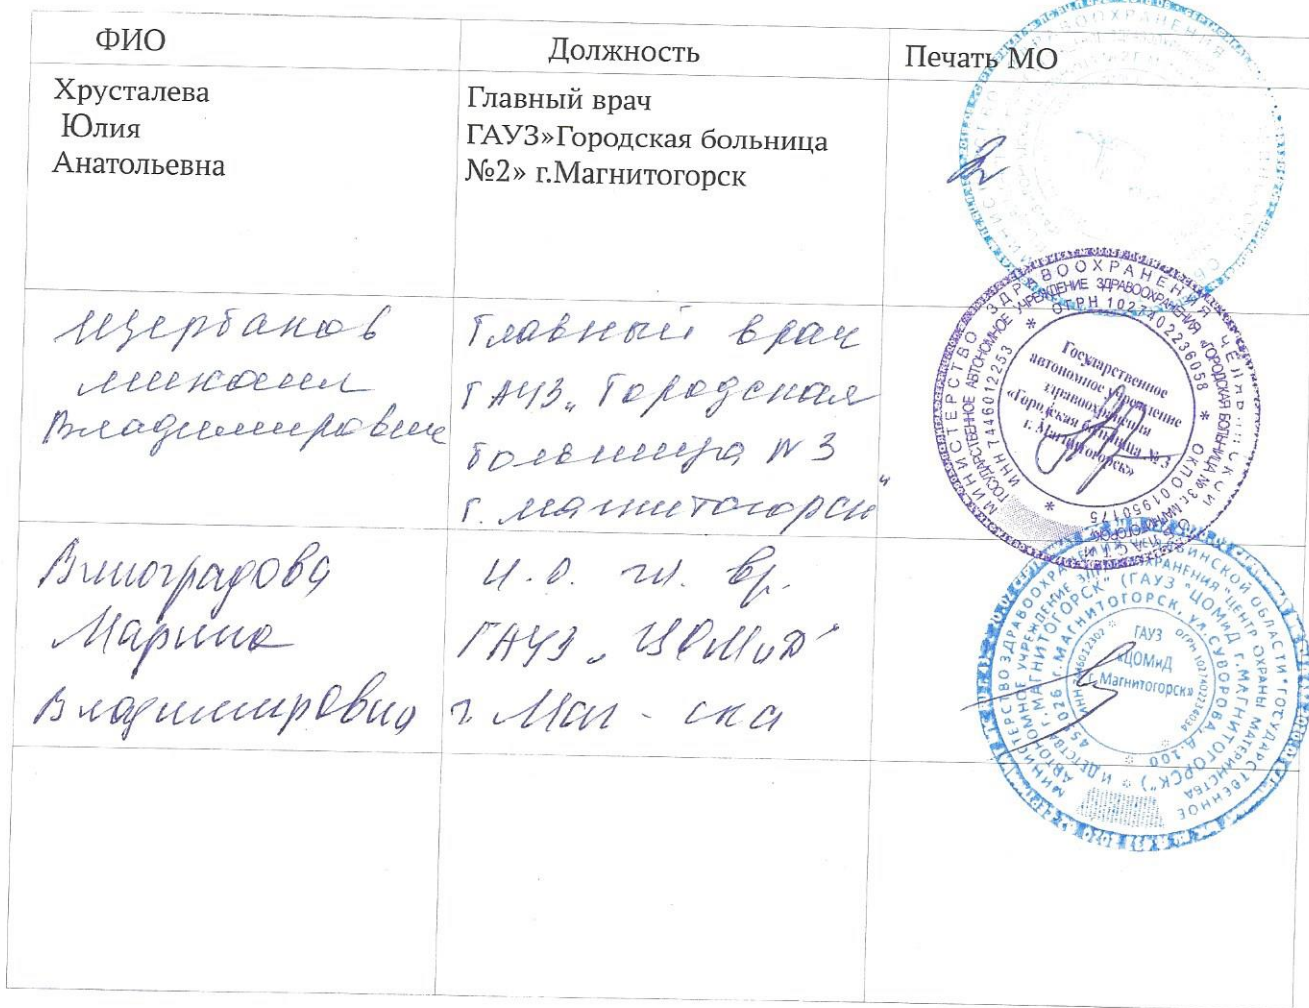 ФИО
Должность
Печать МО
Хрусталева
Юлия
Анатольевна
Главный врач
ГАУЗ»Городская больница
№2» г.Магнитогорск
Щербаков
Михаил
Владимирович
Главный врач
ГАУЗ „Городская
больница №3
г. Магнитогорск"
МИНИСТЕРСТВО ЗДРАВООХРАНЕНИЯ ЧЕЛЯБИНСКОЙ
ГОСУДАРСТВЕННОЕ АВТОНОМНОЕ УЧРЕЖДЕНИЕ ЗДРАВООХРАНЕНИЯ «ГОРОДСКАЯ БОЛЬНИЦА № 3 г. МАГНИТОГОРСК»
ИНН 7446012253 * ОГРН 1027402236058 * ОКПО 01950175 *
Государственное
автономное учреждение
здравоохранения
«Городская больница № 3
г. Магнитогорск»
Виноградова
Марина
Владимировна
И.О. гл. вр.
ГАУЗ „ЦОМиД"
г. Маг-ска
МИНИСТЕРСТВО ЗДРАВООХРАНЕНИЯ ЧЕЛЯБИНСКОЙ ОБЛАСТИ * ГОСУДАРСТВЕННОЕ
АВТОНОМНОЕ УЧРЕЖДЕНИЕ ЗДРАВООХРАНЕНИЯ "ЦЕНТР ОХРАНЫ МАТЕРИНСТВА
И ДЕТСТВА г. МАГНИТОГОРСК" (ГАУЗ "ЦОМиД г. МАГНИТОГОРСК")
г. МАГНИТОГОРСК, ул. СУВОРОВА, д.100
ОГРН 1027402234034
ГАУЗ
«ЦОМиД
г. Магнитогорск»